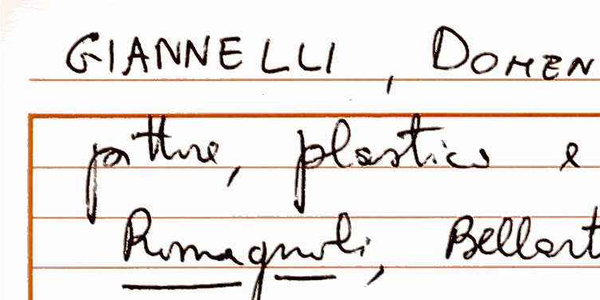 GIANNELLI, DOMEN
pitture, plastica e
Romagnoli, Bellart